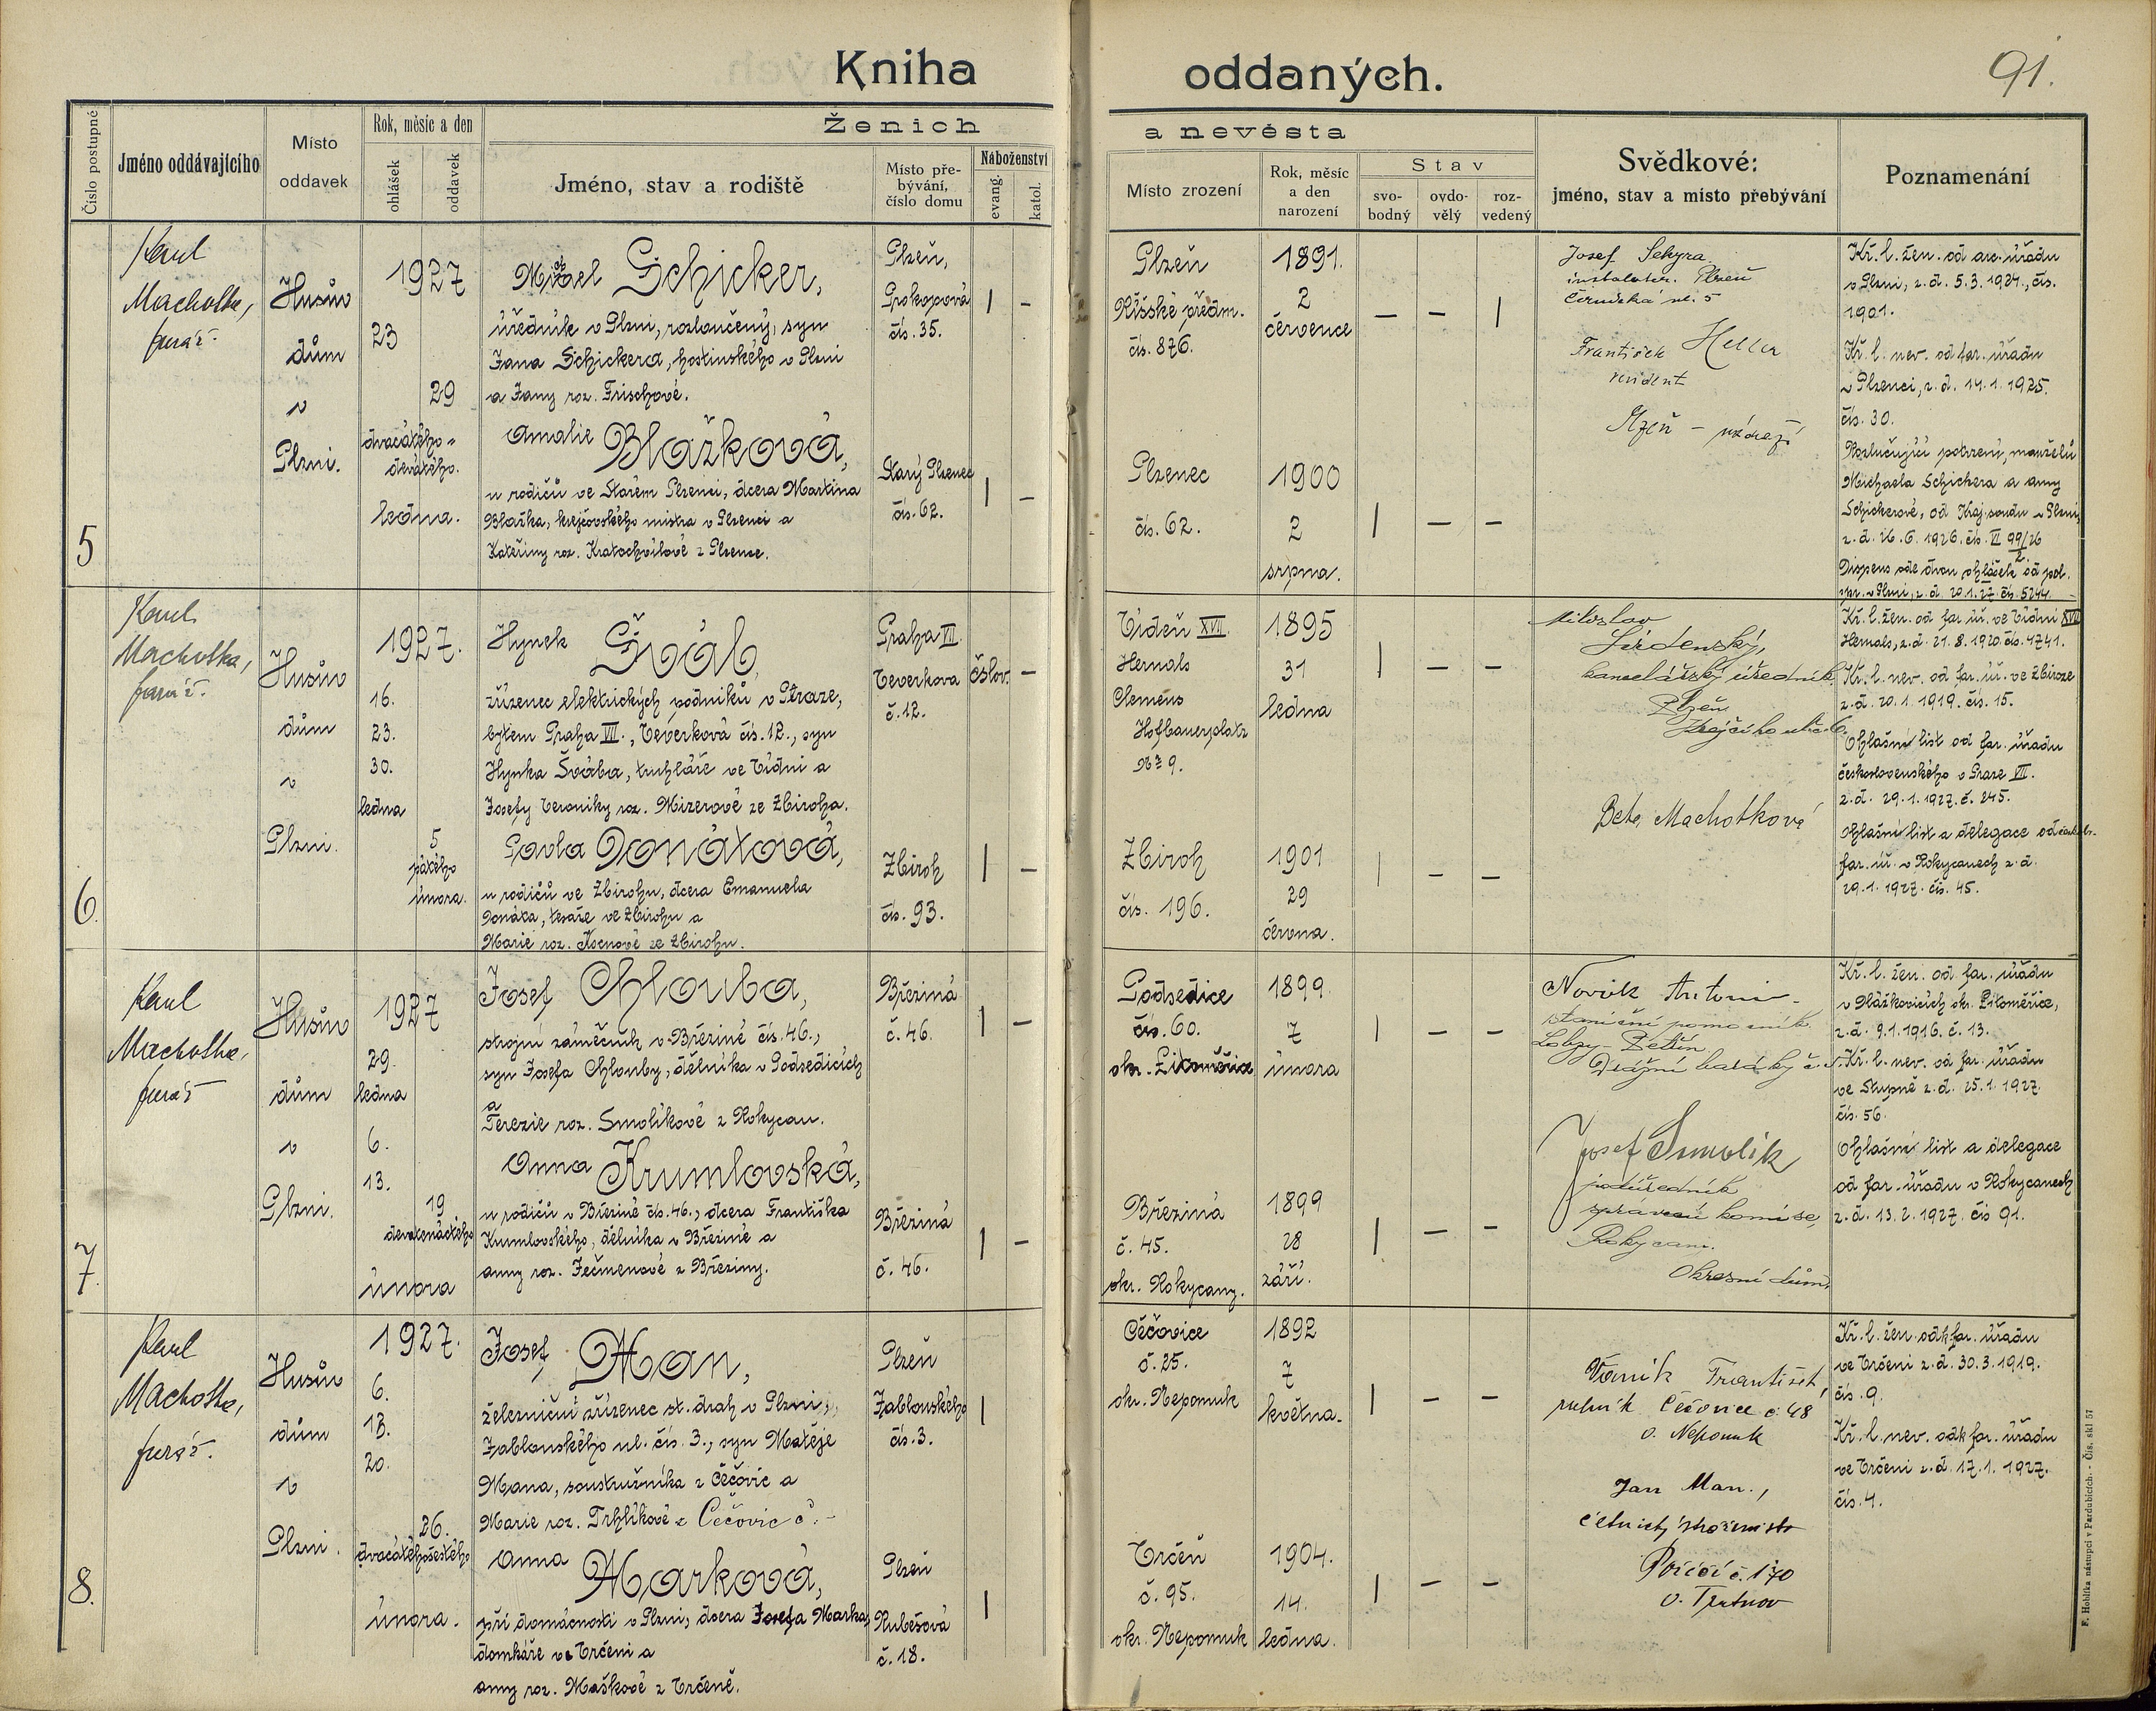 Kniha oddaných.
91.
Číslo postupné
Jméno oddávajícího
Místo
oddavek
Rok, měsíc a den
ohlášek
oddavek
Ženich
a nevěsta
Jméno, stav a rodiště
Místo pře-
bývání,
číslo domu
Náboženství
evang.
katol.
Místo zrození
Rok, měsíc
a den
narození
Stav
svo-
bodný
ovdo-
vělý
roz-
vedený
Svědkové:
jméno, stav a místo přebývání
Poznamenání
5
Karel
Machotka,
farář.
Husův
dům
v
Plzni.
1927
23
29
dvacátého-
devátého.
ledna.
Schicker,
úředník v Plzni, rozloučený, syn
Jana Schickera, hostinského v Plzni
a Jany roz. Frischové.
Plzeň,
Prokopová
čís. 35.
| –
Amalie Blažková,
u rodičů ve Starém Plzenci, dcera Martina
Blažka, krejčovského mistra v Plzenci a
Kateřiny roz. Kratochvílové z Plzence.
Starý Plzenec
čís. 62.
| –
Plzeň
Říšské předm.
čís. 876.
1891.
2
července
– – |
Plzenec
čís. 62.
1900
2
srpna.
| – –
Josef Sekyra
instalater. Plzeň
ul. 5
František Heller
Plzeň – nádraží
Kř. l. žen. od arc. úřadu
v Plzni, z. d. 5.3.1924., čís.
1901.
Kř. l. nev. od far. úřadu
v Plzenci, z. d. 14.1.1925.
čís. 30.
Rozlučující potvrzení, manželů
Michaela Schickera a Anny
Schickerové, od Kraj. soudu v Plzni,
z. d. 26.6.1926. čís. VI 99/26
2.
Dispens ode dvou ohlášek od pol.
spr. v Plzni, z. d. 20.1.27. čís. 5244.
6.
Karel
Machotka,
farář.
Husův
dům
v
Plzni.
1927.
16.
23.
30.
ledna
5
pátého
února.
Hynek Šváb,
zřízenec elektrických podniků v Praze,
bytem Praha VII., Teverková čís. 12., syn
Hynka Švába, truhláře ve Vídni a
Josefy Veroniky roz. Mizerové ze Zbiroha.
Praha VII.
Teverkova
č. 12.
čslov. –
Pavla Donátová,
u rodičů ve Zbirohu, dcera Emanuela
Donáta, tesaře ve Zbirohu a
Marie roz. Kocnové ze Zbirohu.
Zbiroh
čís. 93.
| –
Vídeň XVII.
Hernals
Clemens
Hofbauerplatz
№ 9.
1895
31
ledna
| – –
Zbiroh
čís. 196.
1901
29
června.
| – –
Miloslav
kancelářský úředník
Plzeň
Bete Machotková
Kř. l. žen. od far. úř. ve Vídni XVII
Hernals, z. d. 21.8.1920. čís. 4741.
Kř. l. nev. od far. úř. ve Zbiroze
z. d. 20.1.1919. čís. 15.
Ohlašní list od far. úřadu
československého v Praze VII.
z. d. 29.1.1927. č. 245.
Ohlašní list a delegace od
far. úř. v Rokycanech z. d.
29.1.1927. čís. 45.
7.
Karel
Machotka,
farář
Husův
dům
v
Plzni.
1927
29.
ledna
6.
13.
19
devatenáctého
února
Josef Chlouba,
strojní zámečník v Březině čís. 46.,
syn Josefa Chlouby, dělníka v Podsedicích
a
Terezie roz. Smolíkové z Rokycan.
Březina
č. 46.
| –
Anna Krumlovská,
u rodičů v Březině čís. 46., dcera Františka
Krumlovského, dělníka v Březině a
Anny roz. Ječmenové z Březiny.
Březina
č. 46.
| –
Podsedice
čís. 60.
okr. Litoměřice
1899.
7
února
| – –
Březina
č. 45.
okr. Rokycany.
1899
28
září.
| – –
Novák Antonín
staniční pomocník
Lobzy – Letkin
Drážní baráky č.
Josef Smolík
podúředník
správní komise,
Rokycany.
Okresní dům.
Kř. l. žen. od far. úřadu
v Vlážkovicích okr. Litoměřice,
z. d. 9.1.1916. č. 13.
Kř. l. nev. od far. úřadu
ve Stupně z. d. 25.1.1927.
čís. 56.
Ohlašní list a delegace
od far. úřadu v Rokycanech
z. d. 13.2.1927. čís 91.
8.
Karel
Machotka,
farář.
Husův
dům
v
Plzni.
1927.
6.
13.
20.
26.
dvacátéhošestého
února.
Josef Man,
železniční zřízenec st. drah v Plzni,
Jablonského ul. čís. 3., syn Matěje
Mana, soustružníka z Čečovic a
Marie roz. Trhlíkové z Čečovic č. –
Plzeň
Jablonského
čís. 3.
|
Anna Marková,
při domácnosti v Plzni, dcera Josefa Marka,
domkáře ve Vrčeni a
Anny roz. Maškové z Vrčeně.
Plzeň
Rubešová
č. 18.
|
Čečovice
č. 25.
okr. Nepomuk
1892
7
května.
| – –
Vrčeň
č. 95.
okr. Nepomuk
1904.
14.
ledna.
| – –
Vaník František,
rolník Čečovice č. 48
o. Nepomuk
Jan Man.,
četnický strážmistr
Poříčí č. 170
o. Trutnov
Kř. l. žen. od kř. far. úřadu
ve Vrčeni z. d. 30.3.1919.
čís. 9.
Kř. l. nev. od k. far. úřadu
ve Vrčeni z. d. 17.1.1927.
čís. 4.
F. Hoblíka nástupci v Pardubicích. - Čís. skl 57